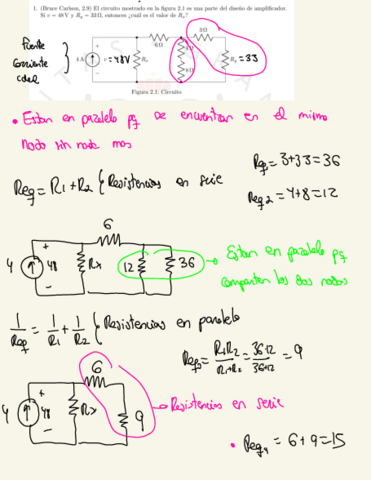 1. (Bruce Carlson, 2.9) El circuito mostrado en la figura 2.1 es una parte del diseño de amplificador.
Si v = 48 V y R_g = 33 Ω, entonces ¿cuál es el valor de R_x?
Fuente
Corriente
6Ω
3Ω
4 A
v=48V
R_x
8Ω
R_g =33
Figura 2.1: Circuito
• Estan en paralelo pq se encuentran en el mismo
nodo sin nada mas
Req = R1+R2 { Resistencias en serie
Req=3+33=36
Req2=4+8=12
6
4
48
Rx
12
36
Estan en paralelo pq
comparten los dos nodos
1/Req = 1/R1 + 1/R2 { Resistencias en paralelo
Req3 = R1R2/R1+R2 = 36·12/36+12 = 9
6
4
48
Rx
9
Resistencias en serie
• Req4 = 6+9=15